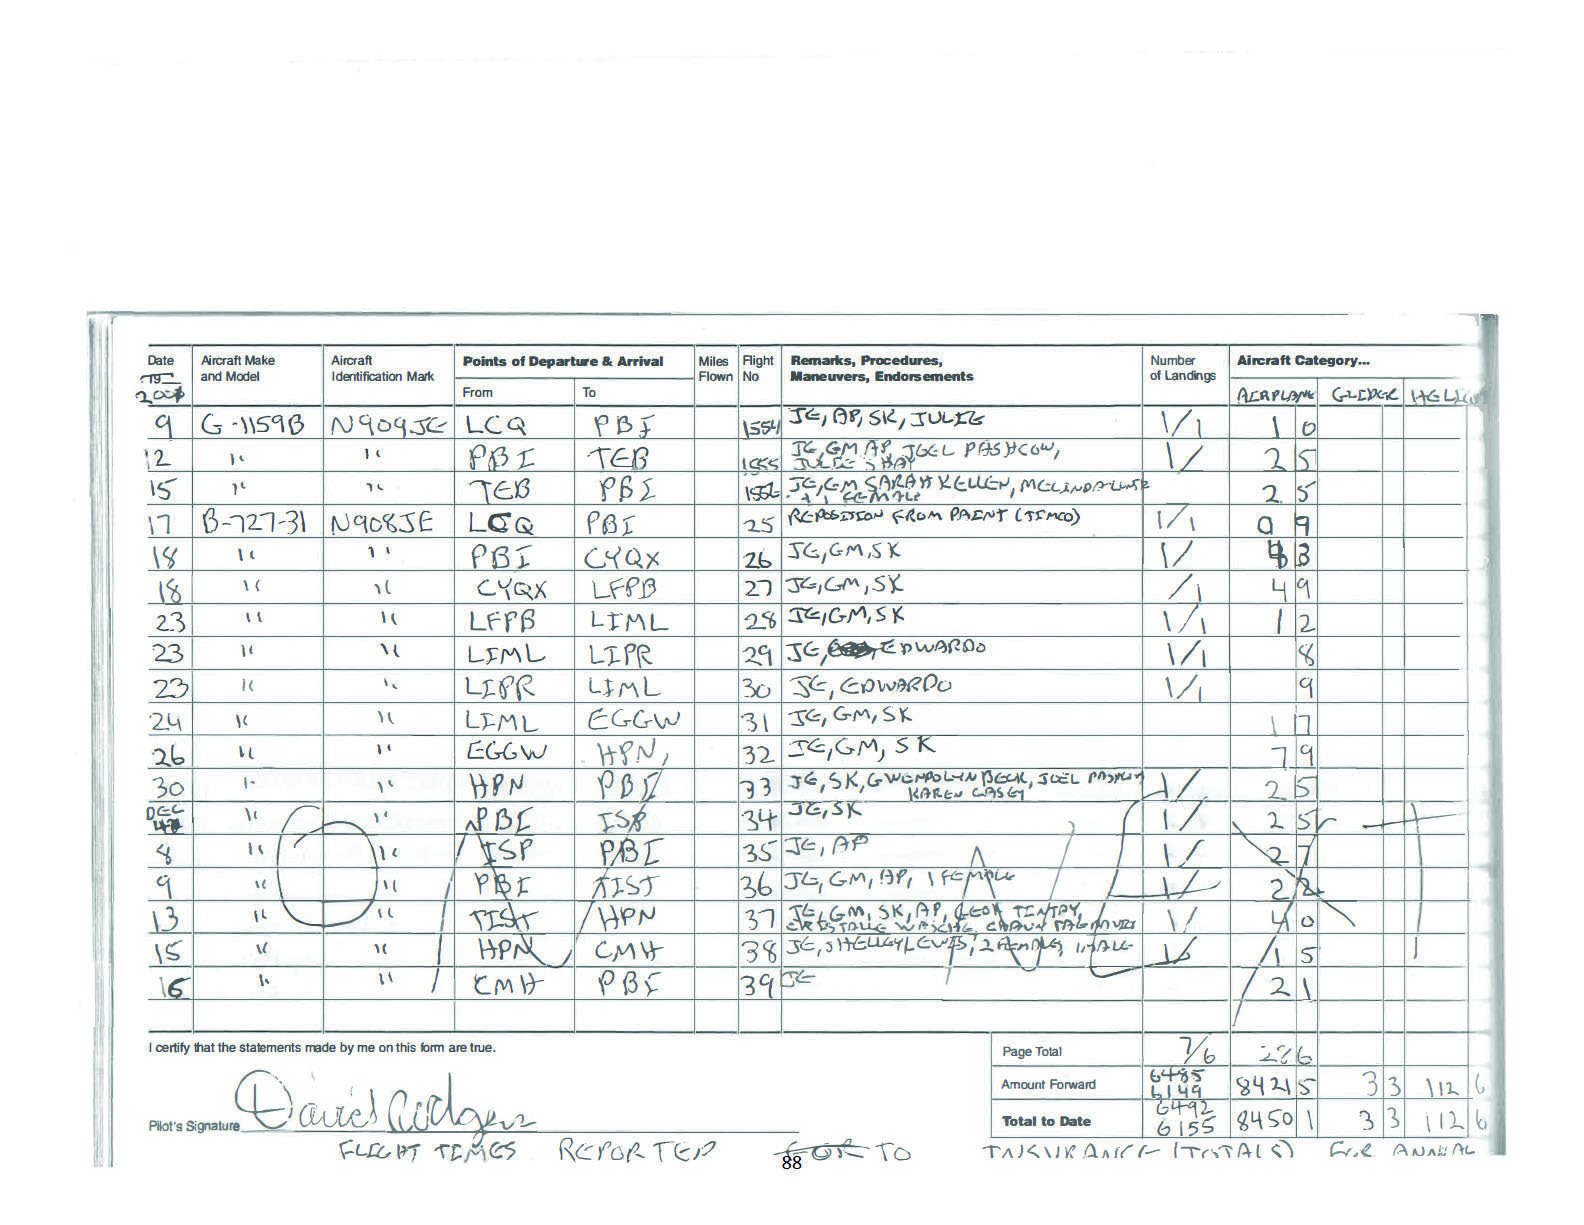 Date Aircraft Make Aircraft Points of Departure & Arrival Miles Flight Remarks, Procedures, Number Aircraft Category...
19 and Model Identification Mark Flown No Maneuvers, Endorsements of Landings
From To AIRPLANE GLIDER
9 G-1159B N909JE LCQ PBI 1554 JE, AP, SK, JULIE 1/1 1 0
12 " " PBI TEB 1555 JE, GM, AP, JOEL PASHCOW, 1/ 2 5
JULIE SHAY
15 " " TEB PBI JE, GM, SARAH KELLEN, 2 5
+ 1 FEMALE
17 B-727-31 N908JE LCQ PBI 25 REPOSITION FROM PAINT (TIMCO) 1/1 0 9
18 " " PBI CYQX 26 JE, GM, SK 1/ 3
18 " " CYQX LFPB 27 JE, GM, SK /1 4 9
23 " " LFPB LIML 28 JE, GM, SK 1/1 1 2
23 " " LIML LIPR 29 JE, EDWARDO 1/1 8
23 " " LIPR LIML 30 JE, EDWARDO 1/1 9
24 " " LIML EGGW 31 JE, GM, SK 1 7
26 " " EGGW HPN 32 JE, GM, SK 7 9
30 " " HPN PBI 33 JE, SK, GWENDOLYN BECK, JOEL 1/ 2 5
KAREN CASEY
DEC " " PBI ISP 34 JE, SK 1/ 2 5
8 " " ISP PBI 35 JE, AP 1/ 2 7
9 " " PBI TIST 36 JE, GM, AP, 1 FEMALE 1/ 2 2
13 " " TIST HPN 37 JE, GM, SK, AP, 1/ 4 0
15 " " HPN CMH 38 JE, SHELLEY LEWIS, 2 FEMALES, 1 MALE 1 5
16 " " CMH PBI 39 JE 2 1
I certify that the statements made by me on this form are true.
Page Total 7/6 6
Amount Forward 6485 8421 5 3 3 112 6
6149
Total to Date 6492 8450 1 3 3 112 6
6155
Pilot's Signature David Rodgers
FLIGHT TIMES REPORTED FOR TO INSURANCE (TOTALS) FOR ANNUAL
88